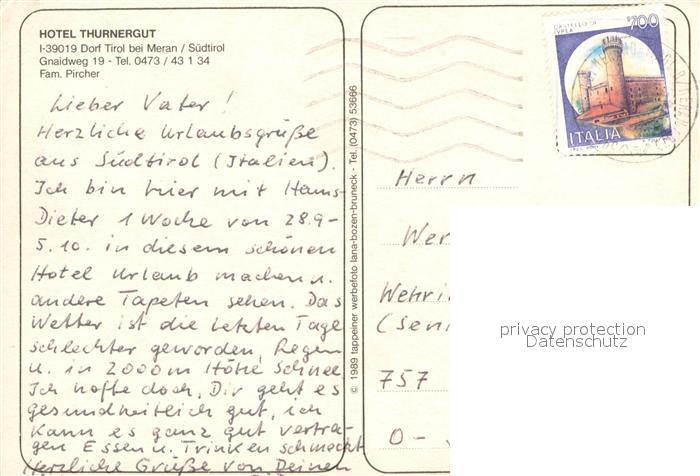 HOTEL THURNERGUT
I-39019 Dorf Tirol bei Meran / Südtirol
Gnaidweg 19 - Tel. 0473 / 43 1 34
Fam. Pircher
Lieber Vater!
Herzliche Urlaubsgrüße
aus Südtirol (Italien).
Ich bin hier mit Hans-
Dieter 1 Woche von 28.9-
5.10. in diesem schönen
Hotel Urlaub machen u.
andere Tapeten sehen. Das
Wetter ist die letzten Tage
schlechter geworden, Regen
u. in 2000m Höhe Schnee.
Ich hoffe doch, Dir geht es
gesundheitlich gut, ich
kann es ganz gut vertra-
gen Essen u. Trinken schmeckt
Herzliche Grüße von Deinen
© 1989 tappeiner werbefoto lana-bozen-bruneck - Tel. (0473) 53666
CASTELLO DI
IVREA
700
ITALIA
Herrn
Wer
Wehri
(Seni
757
O-
privacy protection
Datenschutz